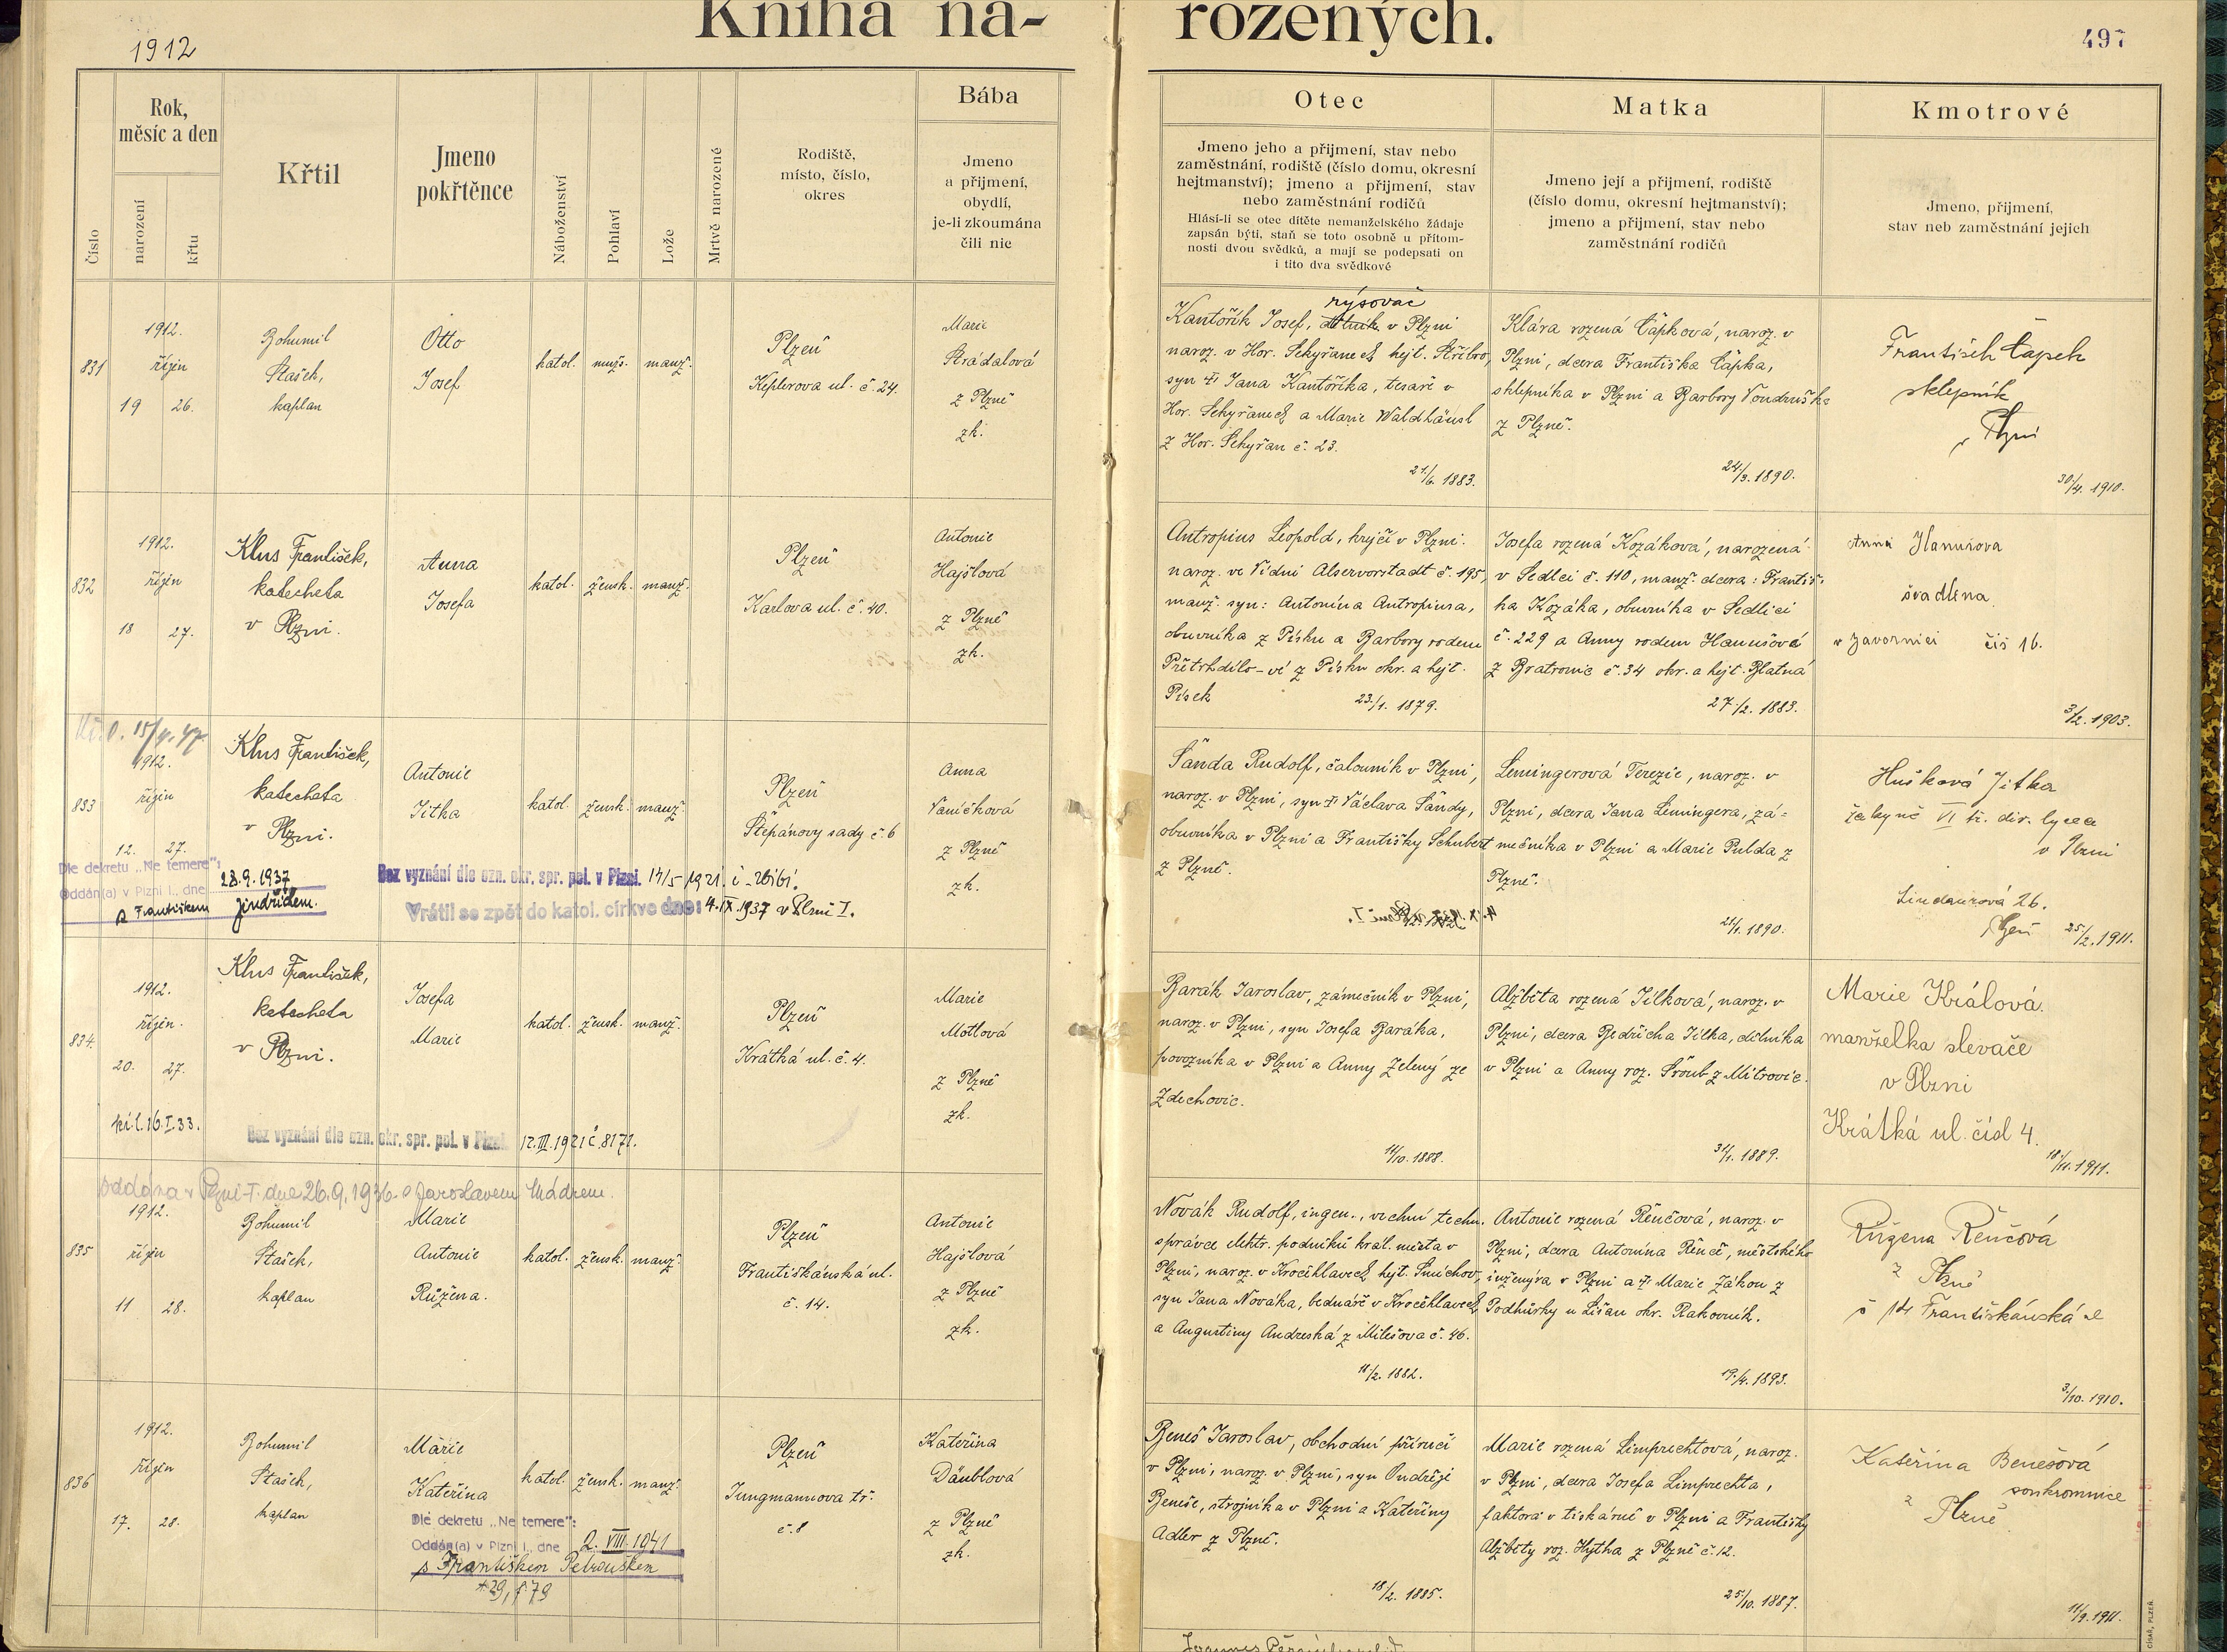 Kniha na-
rozených.
1912
497
Číslo
Rok,
měsíc a den
narození
křtu
Křtil
Jmeno
pokřtěnce
Náboženství
Pohlaví
Lože
Mrtvě narozené
Rodiště,
místo, číslo,
okres
Bába
Jmeno
a přijmení,
obydlí,
je-li zkoumána
čili nic
Otec
Jmeno jeho a přijmení, stav nebo
zaměstnání, rodiště (číslo domu, okresní
hejtmanství); jmeno a přijmení, stav
nebo zaměstnání rodičů
Hlásí-li se otec dítěte nemanželského žádaje
zapsán býti, staň se toto osobně u přítom-
nosti dvou svědků, a mají se podepsati on
i tito dva svědkové
Matka
Jmeno její a přijmení, rodiště
(číslo domu, okresní hejtmanství);
jmeno a přijmení, stav nebo
zaměstnání rodičů
Kmotrové
Jmeno, přijmení,
stav neb zaměstnání jejich
831
1912.
říjin
19 26.
Bohumil
Stašek,
kaplan
Otto
Josef
katol. mužs. manž.
Plzeň
Keplerova ul. č. 24.
Marie
Strádalová
z Plzně
zk.
rýsovač
Kantořík Josef, v Plzni
naroz. v Hor. Sekyřanech, hejt. Stříbro,
syn Jana Kantoříka, tesaře v
Hor. Sekyřanech a Marie Waldhäusl
z Hor. Sekyřan č. 23.
21/6. 1883.
Klára rozená Čápková, naroz. v
Plzni, dcera Františka Čápka,
sklepníka v Plzni a Barbory Vondruška
z Plzně.
24/3. 1890.
František Čapek
sklepník
v Plzni
30/4. 1910.
832
1912.
říjin
18 27.
Klus František,
katecheta
v Plzni.
Anna
Josefa
katol. žensk. manž.
Plzeň
Karlova ul. č. 40.
Antonie
Hajšlová
z Plzně
zk.
Antropius Leopold, krejčí v Plzni.
naroz. ve Vídni Alservorstadt č. 195,
manž. syn: Antonína Antropiusa,
obuvníka z Písku a Barbory rodem
Přetrhdílo-vé z Písku okr. a hejt.
Písek
23/1. 1879.
Josefa rozená Kozáková, narozená
v Sedlci č. 110, manž. dcera: Františ-
ka Kozáka, obuvníka v Sedlici
č. 229 a Anny rodem Hanušové
z Bratronic č. 34 okr. a hejt. Blatná
27/2. 1883.
Anna Hanušova
švadlena
v Javornici čís 16.
3/2. 1903.
833
15/4. 47.
1912.
říjin
12. 27.
Klus František,
katecheta
v Plzni.
Antonie
Jitka
katol. žensk. manž.
Plzeň
Štěpánovy sady č. 6
Anna
Vaníčková
z Plzně
zk.
Dle dekretu „Ne temere“:
Oddán(a) v Plzni I., dne 28.9.1937
s Františkem Jindřichem.
Bez vyznání dle ozn. okr. spr. pol. v Plzni. 17/5 1921.
Vrátil se zpět do katol. církve dne: 4.IX.1937 v Plzni I.
Šanda Rudolf, čalouník v Plzni,
naroz. v Plzni, syn Václava Šandy,
obuvníka v Plzni a Františky Schubert
z Plzně.
Lemingerová Terezie, naroz. v
Plzni, dcera Jana Lemingera, zá-
mečníka v Plzni a Marie Pulda z
Plzně.
21/1. 1890.
Hušková Jitka
žákyně VI tř. dív. lycea
v Plzni
Lindaurová 26.
Plzeň
25/2. 1911.
834.
1912.
říjin.
20. 27.
Klus František,
katecheta
v Plzni.
Josefa
Marie
katol. žensk. manž.
Plzeň
Krátká ul. č. 4.
Marie
Motlová
z Plzně
zk.
kř. l. 16.I.33.
Bez vyznání dle ozn. okr. spr. pol. v Plzni 12.III.1921 č. 8171.
Barák Jaroslav, zámečník v Plzni,
naroz. v Plzni, syn Josefa Baráka,
povozníka v Plzni a Anny Zelený ze
Zdechovic.
11/10. 1888.
Alžběta rozená Jílková, naroz. v
Plzni, dcera Bedřicha Jílka, dělníka
v Plzni a Anny roz. Šroub z Mitrovic.
31/1. 1889.
Marie Králová
manželka slevače
v Plzni
Krátká ul. čísl 4.
18/11. 1911.
oddána v Plzni I. dne 26.9.1936 s Jaroslavem Mádrem.
835
1912.
říjin
11 28.
Bohumil
Stašek,
kaplan
Marie
Antonie
Růžena.
katol. žensk. manž.
Plzeň
Františkánská ul.
č. 14.
Antonie
Hajšlová
z Plzně
zk.
Novák Rudolf, ingen., vrchní techn.
správce elektr. podniků král. města v
Plzni, naroz. v Kročehlavech, hejt. Smíchov,
syn Jana Nováka, bednáře v Kročehlavech
a Augustiny Andreská z Milešova č. 46.
11/2. 1882.
Antonie rozená Řenčová, naroz. v
Plzni, dcera Antonína Řenče, městského
inženýra v Plzni a Marie Zákon z
Podhůrky u Lišan okr. Rakovník.
19/4. 1893.
Růžena Řenčová
z Plzně
č 14 Františkánská ul
3/10. 1910.
836
1912.
říjin
17. 28.
Bohumil
Stašek,
kaplan
Marie
Kateřina
katol. žensk. manž.
Plzeň
Jungmannova tř.
č. 8
Kateřina
Däublová
z Plzně
zk.
Dle dekretu „Ne temere“:
Oddán(a) v Plzni I., dne 2. VIII. 1941
s Františkem Petrouškem
Beneš Jaroslav, obchodní příručí
v Plzni, naroz. v Plzni, syn Ondřeje
Beneše, strojníka v Plzni a Kateřiny
Adler z Plzně.
18/2. 1885.
Marie rozená Limprechtová, naroz.
v Plzni, dcera Josefa Limprechta,
faktora v tiskárně v Plzni a Františky
Alžběty roz. Hytha z Plzně č. 12.
25/10. 1887.
Kateřina Benešová
soukromnice
z Plzně
11/9. 1911.
CÍSAŘ, PLZEŇ.